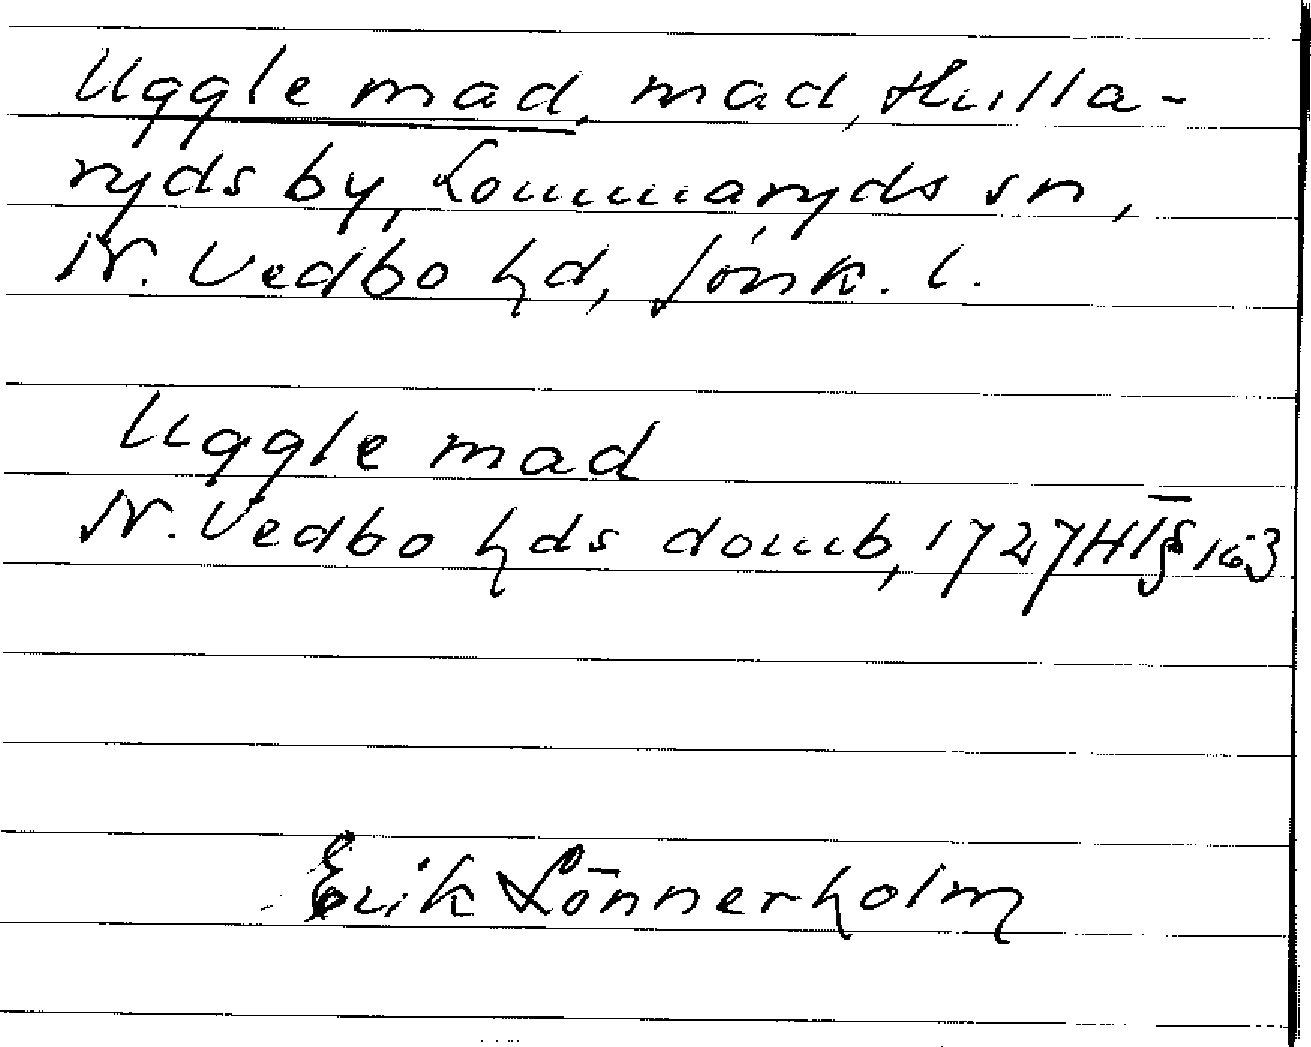 Uggle mad, mad, Hulla-
ryds by, Lommaryds sn,
N. Vedbo hd, Jönk. l.
Uggle mad
N. Vedbo hds domb, 1727 HT § 163
Erik Lönnerholm